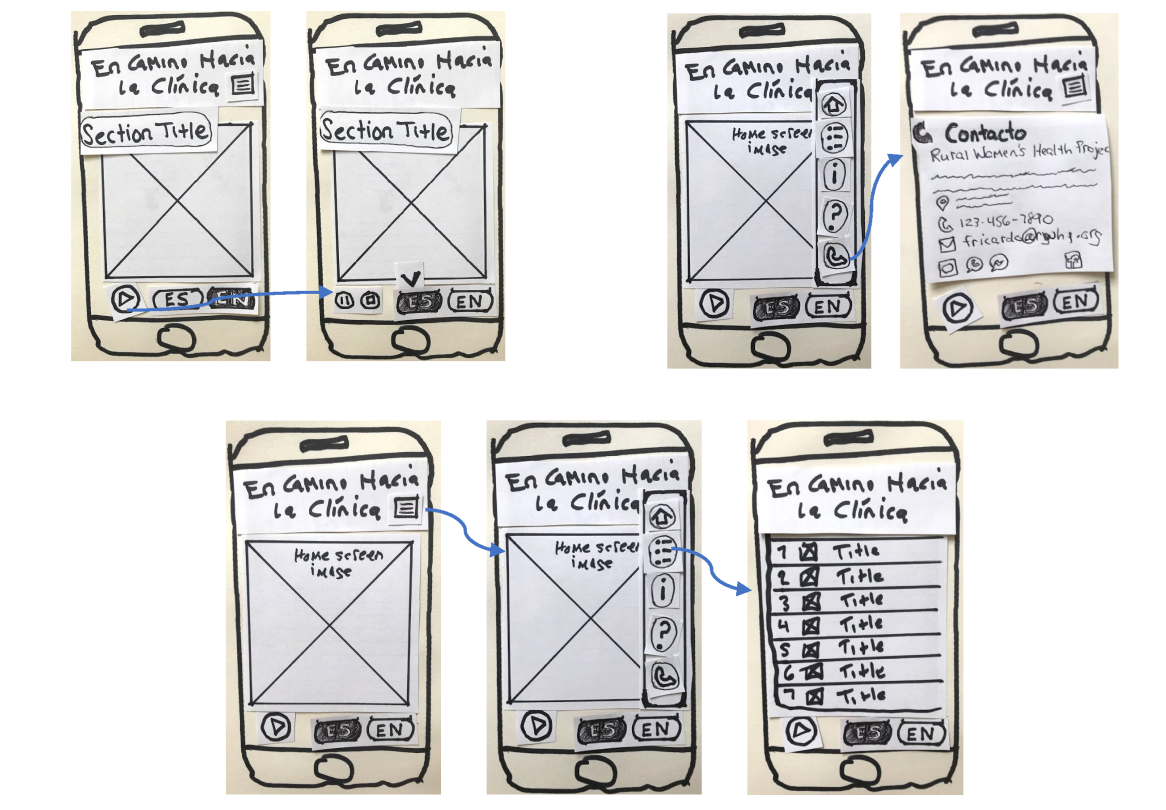 En Camino Hacia
la Clínica
Section Title
ES EN
En Camino Hacia
la Clínica
Section Title
ES EN
En Camino Hacia
la Clínica
Home screen
image
i
?
ES EN
En Camino Hacia
la Clínica
Contacto
Rural Women's Health Projec
123-456-7890
ES EN
En Camino Hacia
la Clínica
Home screen
image
ES EN
En Camino Hacia
la Clínica
Home screen
image
i
?
ES EN
En Camino Hacia
la Clínica
1 Title
2 Title
3 Title
4 Title
5 Title
6 Title
7 Title
ES EN